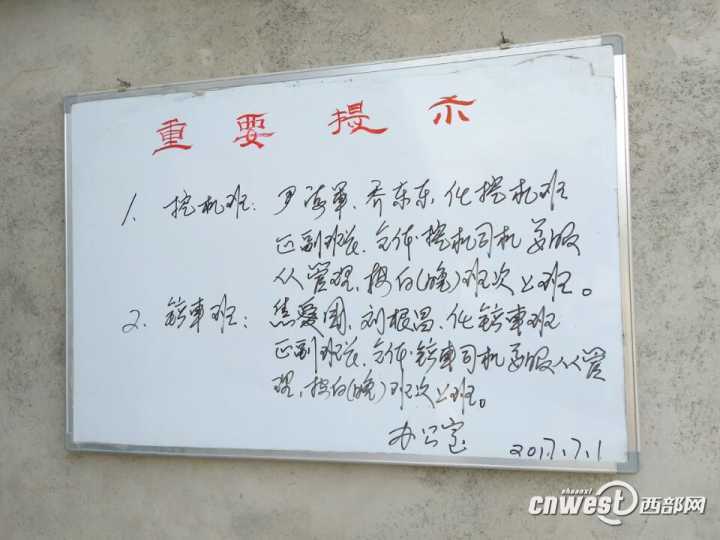 重要提示
1. 挖机班: 尹海军、乔东东、化挖机班
正副班长、全体挖机司机要服
从管理,按白(晚)班次上班。
2. 铲車班: 焦爱国、刘根昌、化铲車班
正副班长、全体铲車司机要服从管
理,按白(晚)班次上班。
办公室 2017.7.1
shaanxi
cnwest 西部网